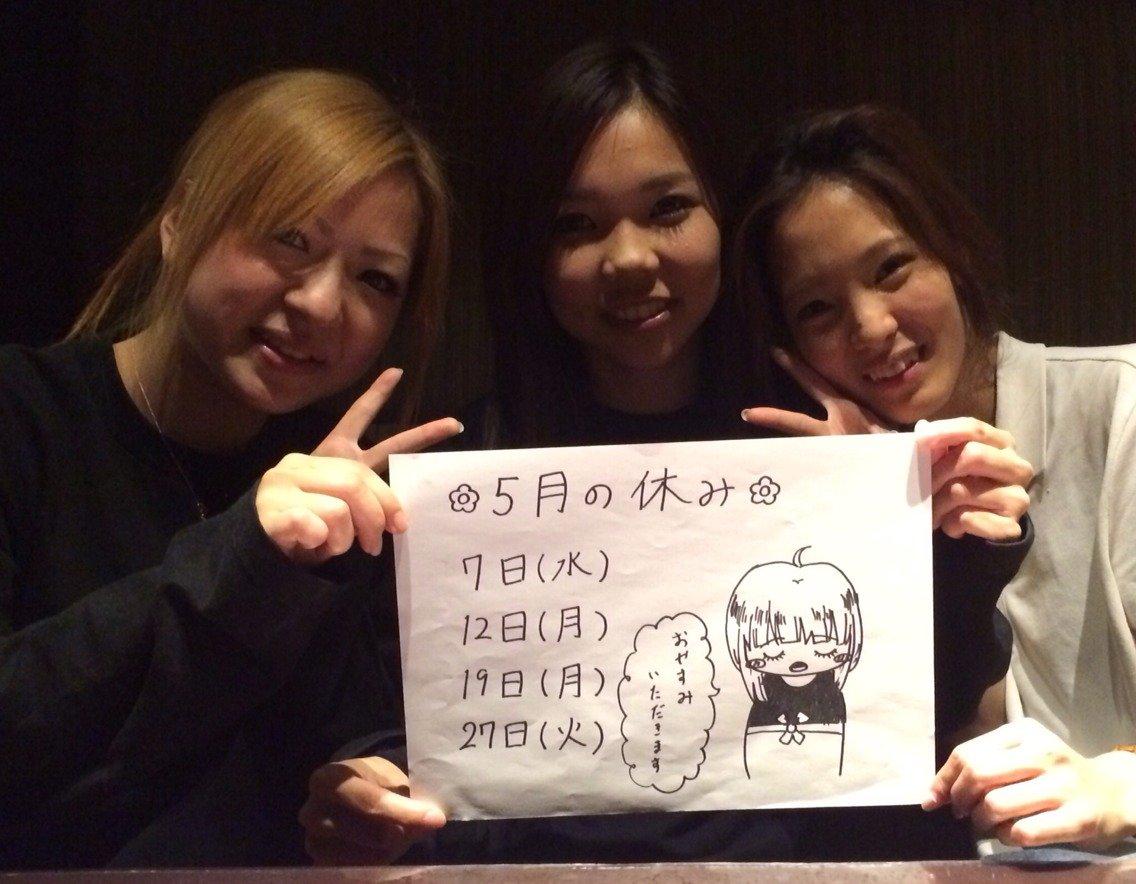 5月の休み
7日(水)
12日(月)
19日(月)
27日(火)
おやすみ
いただきます